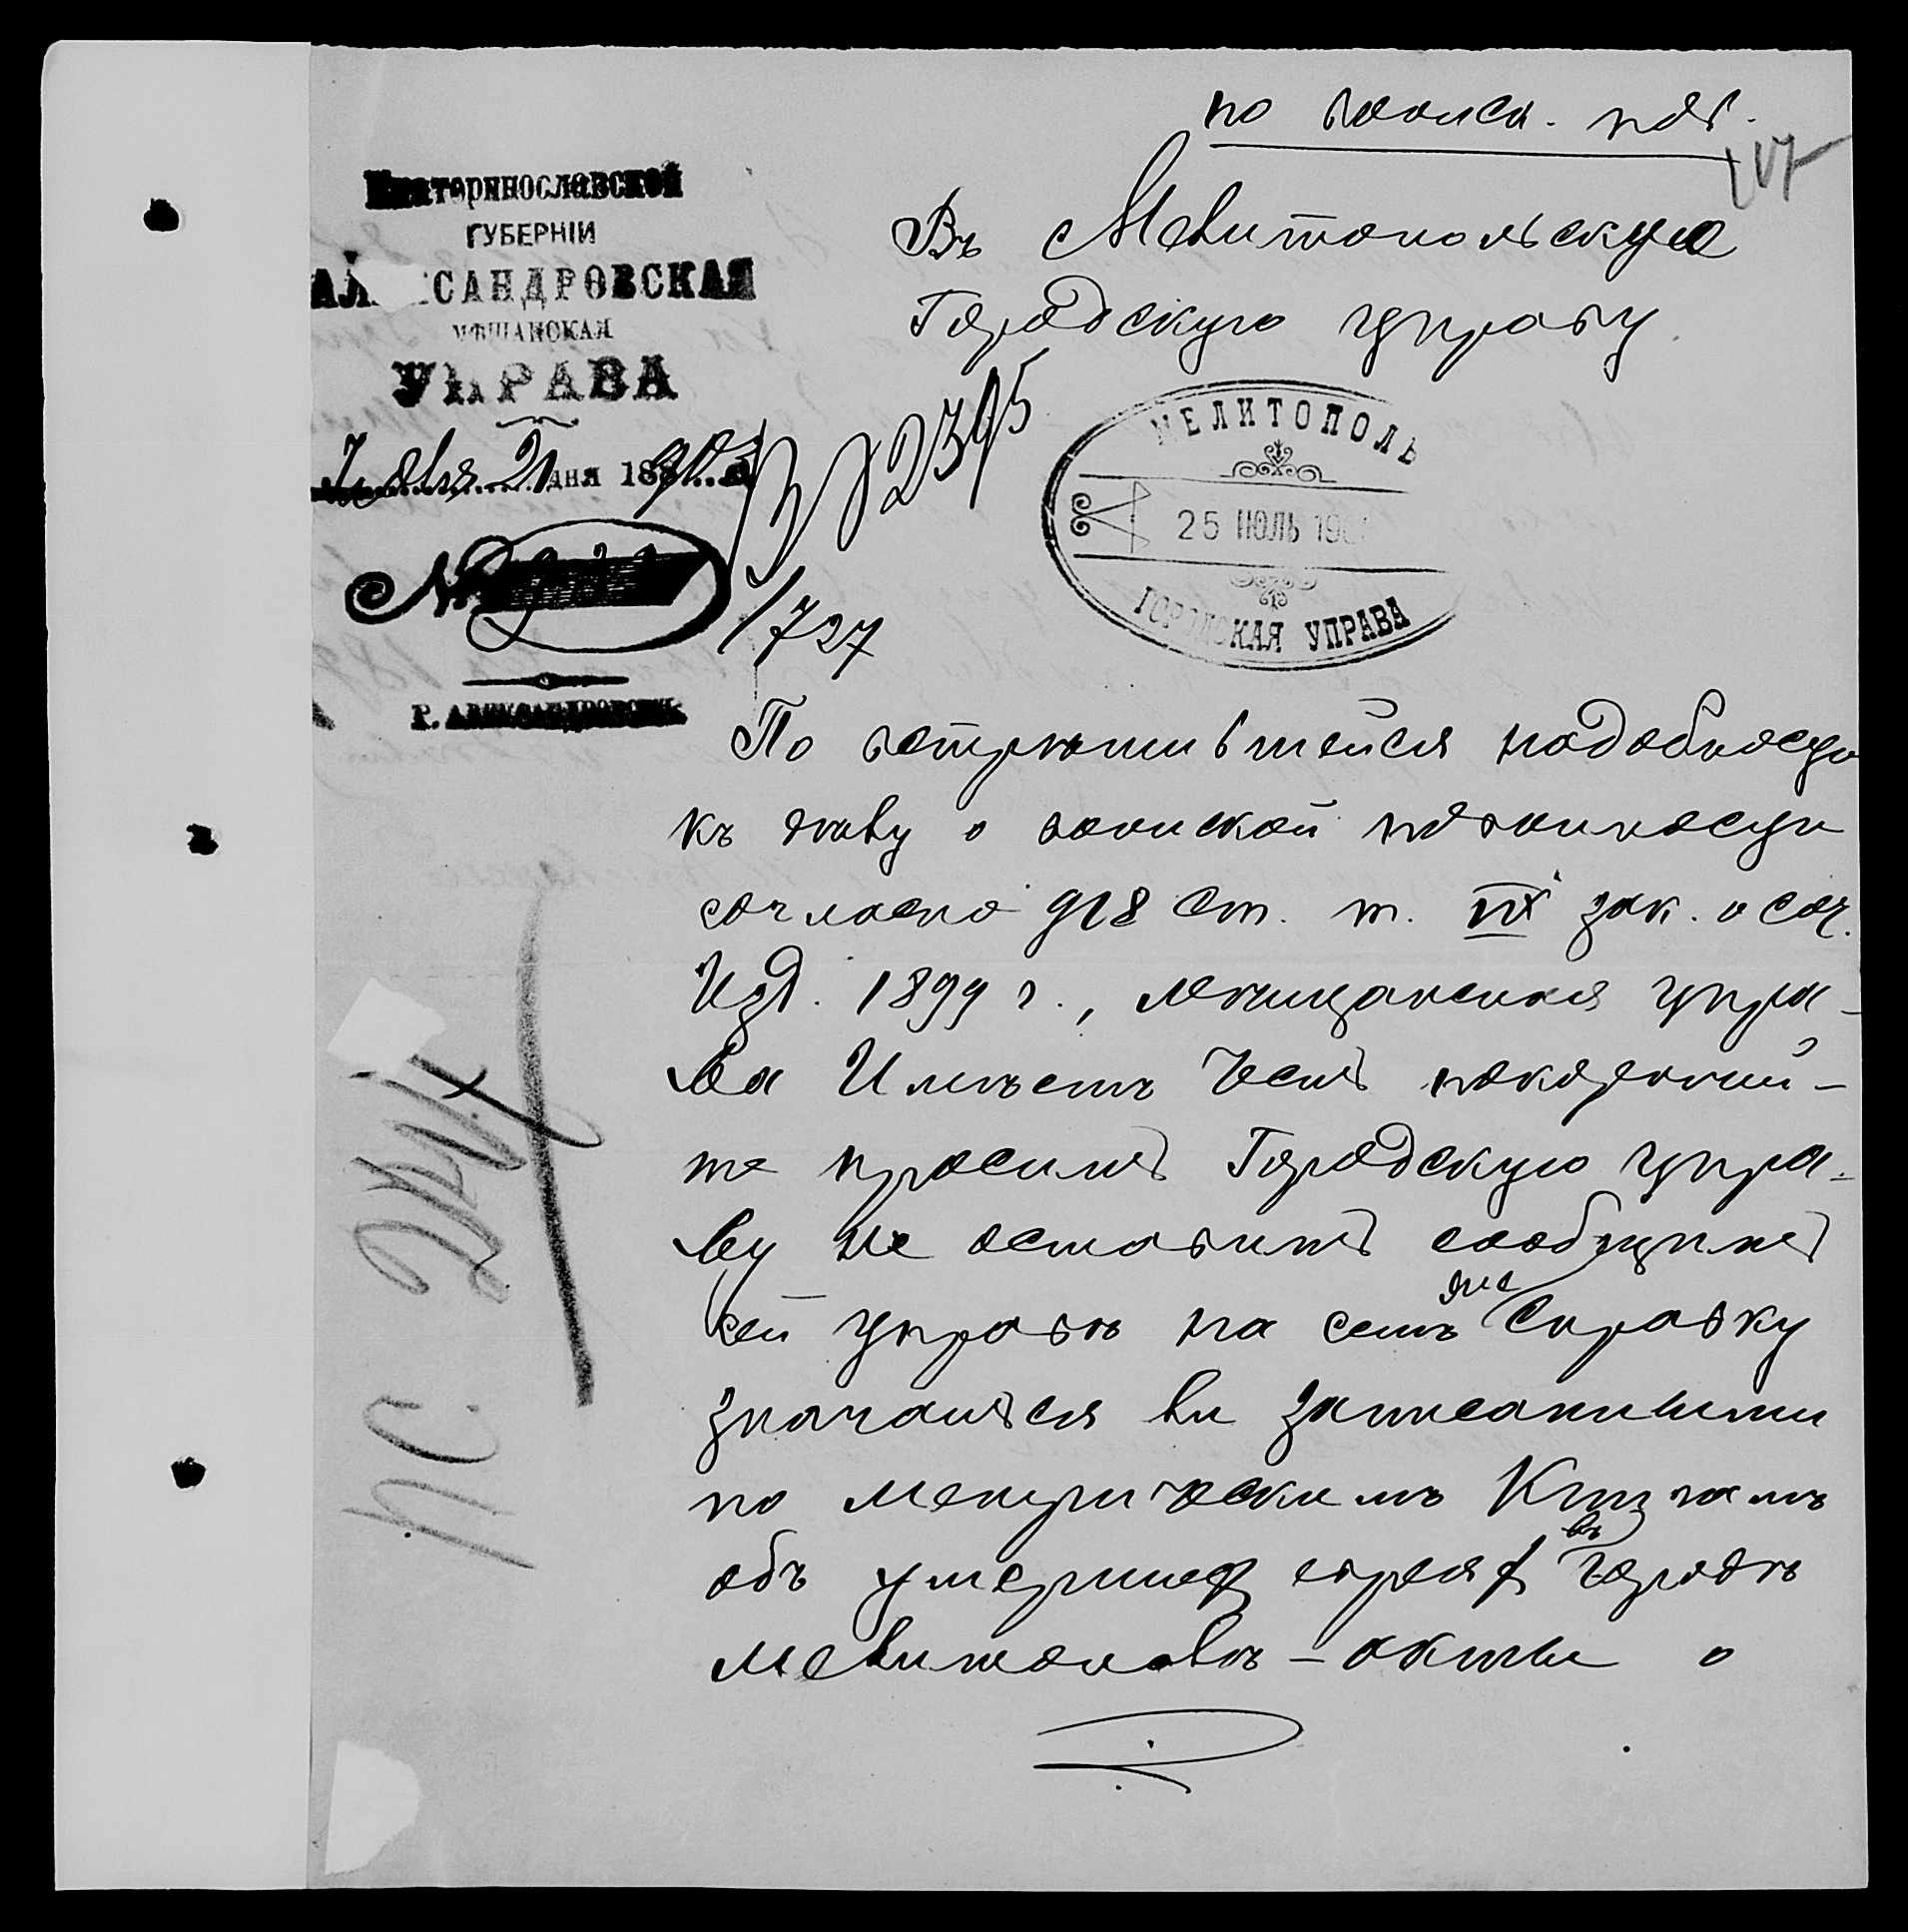 по воинск. пов.
117
Екатеринославской
ГУБЕРНІИ
АЛ САНДРОВСКАЯ
МѢЩАНСКАЯ
УПРАВА
Іюля 21 дня 1901
№
2395
1727
Г. АЛЕКСАНДРОВСКЪ
Въ Мелитопольскую
Городскую управу
МЕЛИТОПОЛЬ
25 ИЮЛЬ 190
ГОРОДСКАЯ УПРАВА
По встрѣтившейся надобности
къ дѣлу о воинской повинности
согласно 918 ст. т. IX зак. о сос.
Изд. 1899 г., мѣщанская упра-
ва Имѣетъ честь покорнѣй-
ше просить Городскую упра-
ву не оставить сообщить
сей управѣ на семъ же Справку
значатся ли записанными
по метрическимъ Книгамъ
объ умершихъ евреяхъ въ Городѣ
Мелитополѣ – акты о